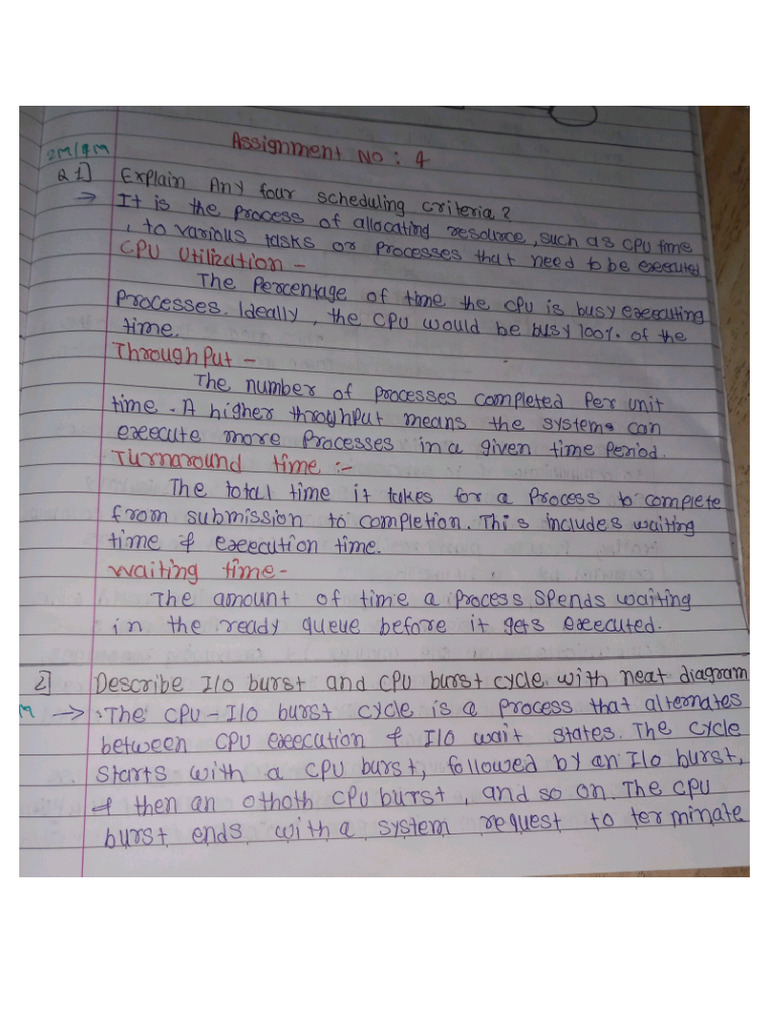 Assignment No : 4
2M/4M
Q 1] Explain Any four scheduling criteria?
→ It is the process of allocating resource, such as CPU time
, to various tasks or processes that need to be executed
CPU Utilization -
The Percentage of time the CPU is busy executing
Processes. Ideally, the CPU would be busy 100% of the
time.
Throughput -
The number of processes completed Per unit
time. A higher throughput means the systems can
execute more Processes in a given time Period.
Turnaround time :-
The total time it takes for a process to complete
from submission to completion. This includes waiting
time & execution time.
waiting time -
The amount of time a process spends waiting
in the ready queue before it gets executed.
2] Describe I/O burst and CPU burst cycle with neat diagram
M → : The CPU - I/O burst cycle is a process that alternates
between CPU execution & I/O wait states. The cycle
starts with a CPU burst, followed by an I/O burst,
& then an othoth CPU burst, and so on. The CPU
burst ends with a system request to terminate